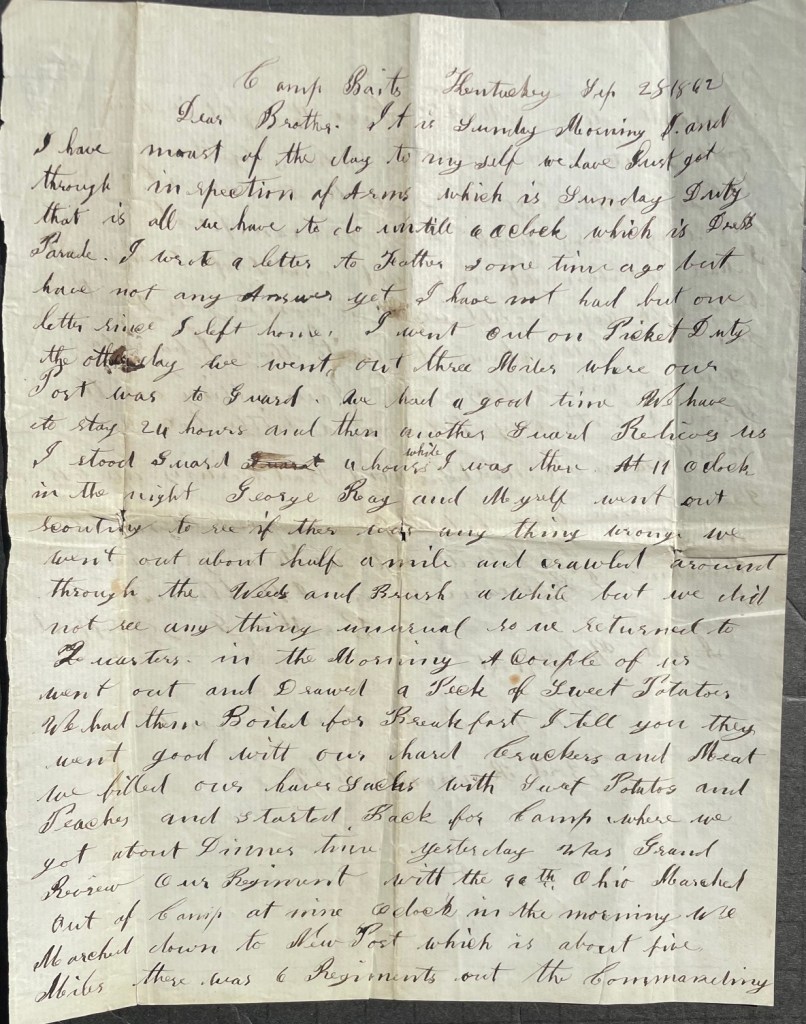 Camp Baits Kentucky Sep 28 1862
Dear Brother. It is Sunday Morning & and
I have moast of the day to my self we have Just got
through inspection of Arms which is Sunday Duty
that is all we have to do untill 4 oclock which is Dress
Parade. I wrote a letter to Father some time ago but
have not any Answer yet I have not had but one
letter since I left home. I went out on Picket Duty
the other day we went out three Miles where our
Post was to Guard. We had a good time We have
to stay 24 hours and then another Guard Relieves us
I stood Guard 4 hours while I was then. At 11 oclock
in the night George Ray and Myself went out
scouting to see if ther was any thing wrong. we
went out about half a mile and crawled around
through the Weeds and Brush a while but we did
not see any thing unusual so we returned to
Quarters. in the Morning A Couple of us
went out and Drawed a Peck of Sweet Potatoes
We had them Boiled for Breakfast I tell you they
went good with our hard Crackers and Meat
we filled our haver Sacks with Sweet Potatos and
Peaches and started Back for Camp where we
got about Dinner time yesterday Was Grand
Review Our Regiment with the 90th. Ohio Marched
Out of Camp at nine oclock in the morning We
Marched down to New Post which is about five
Miles there was 6 Regiments out the Commanding